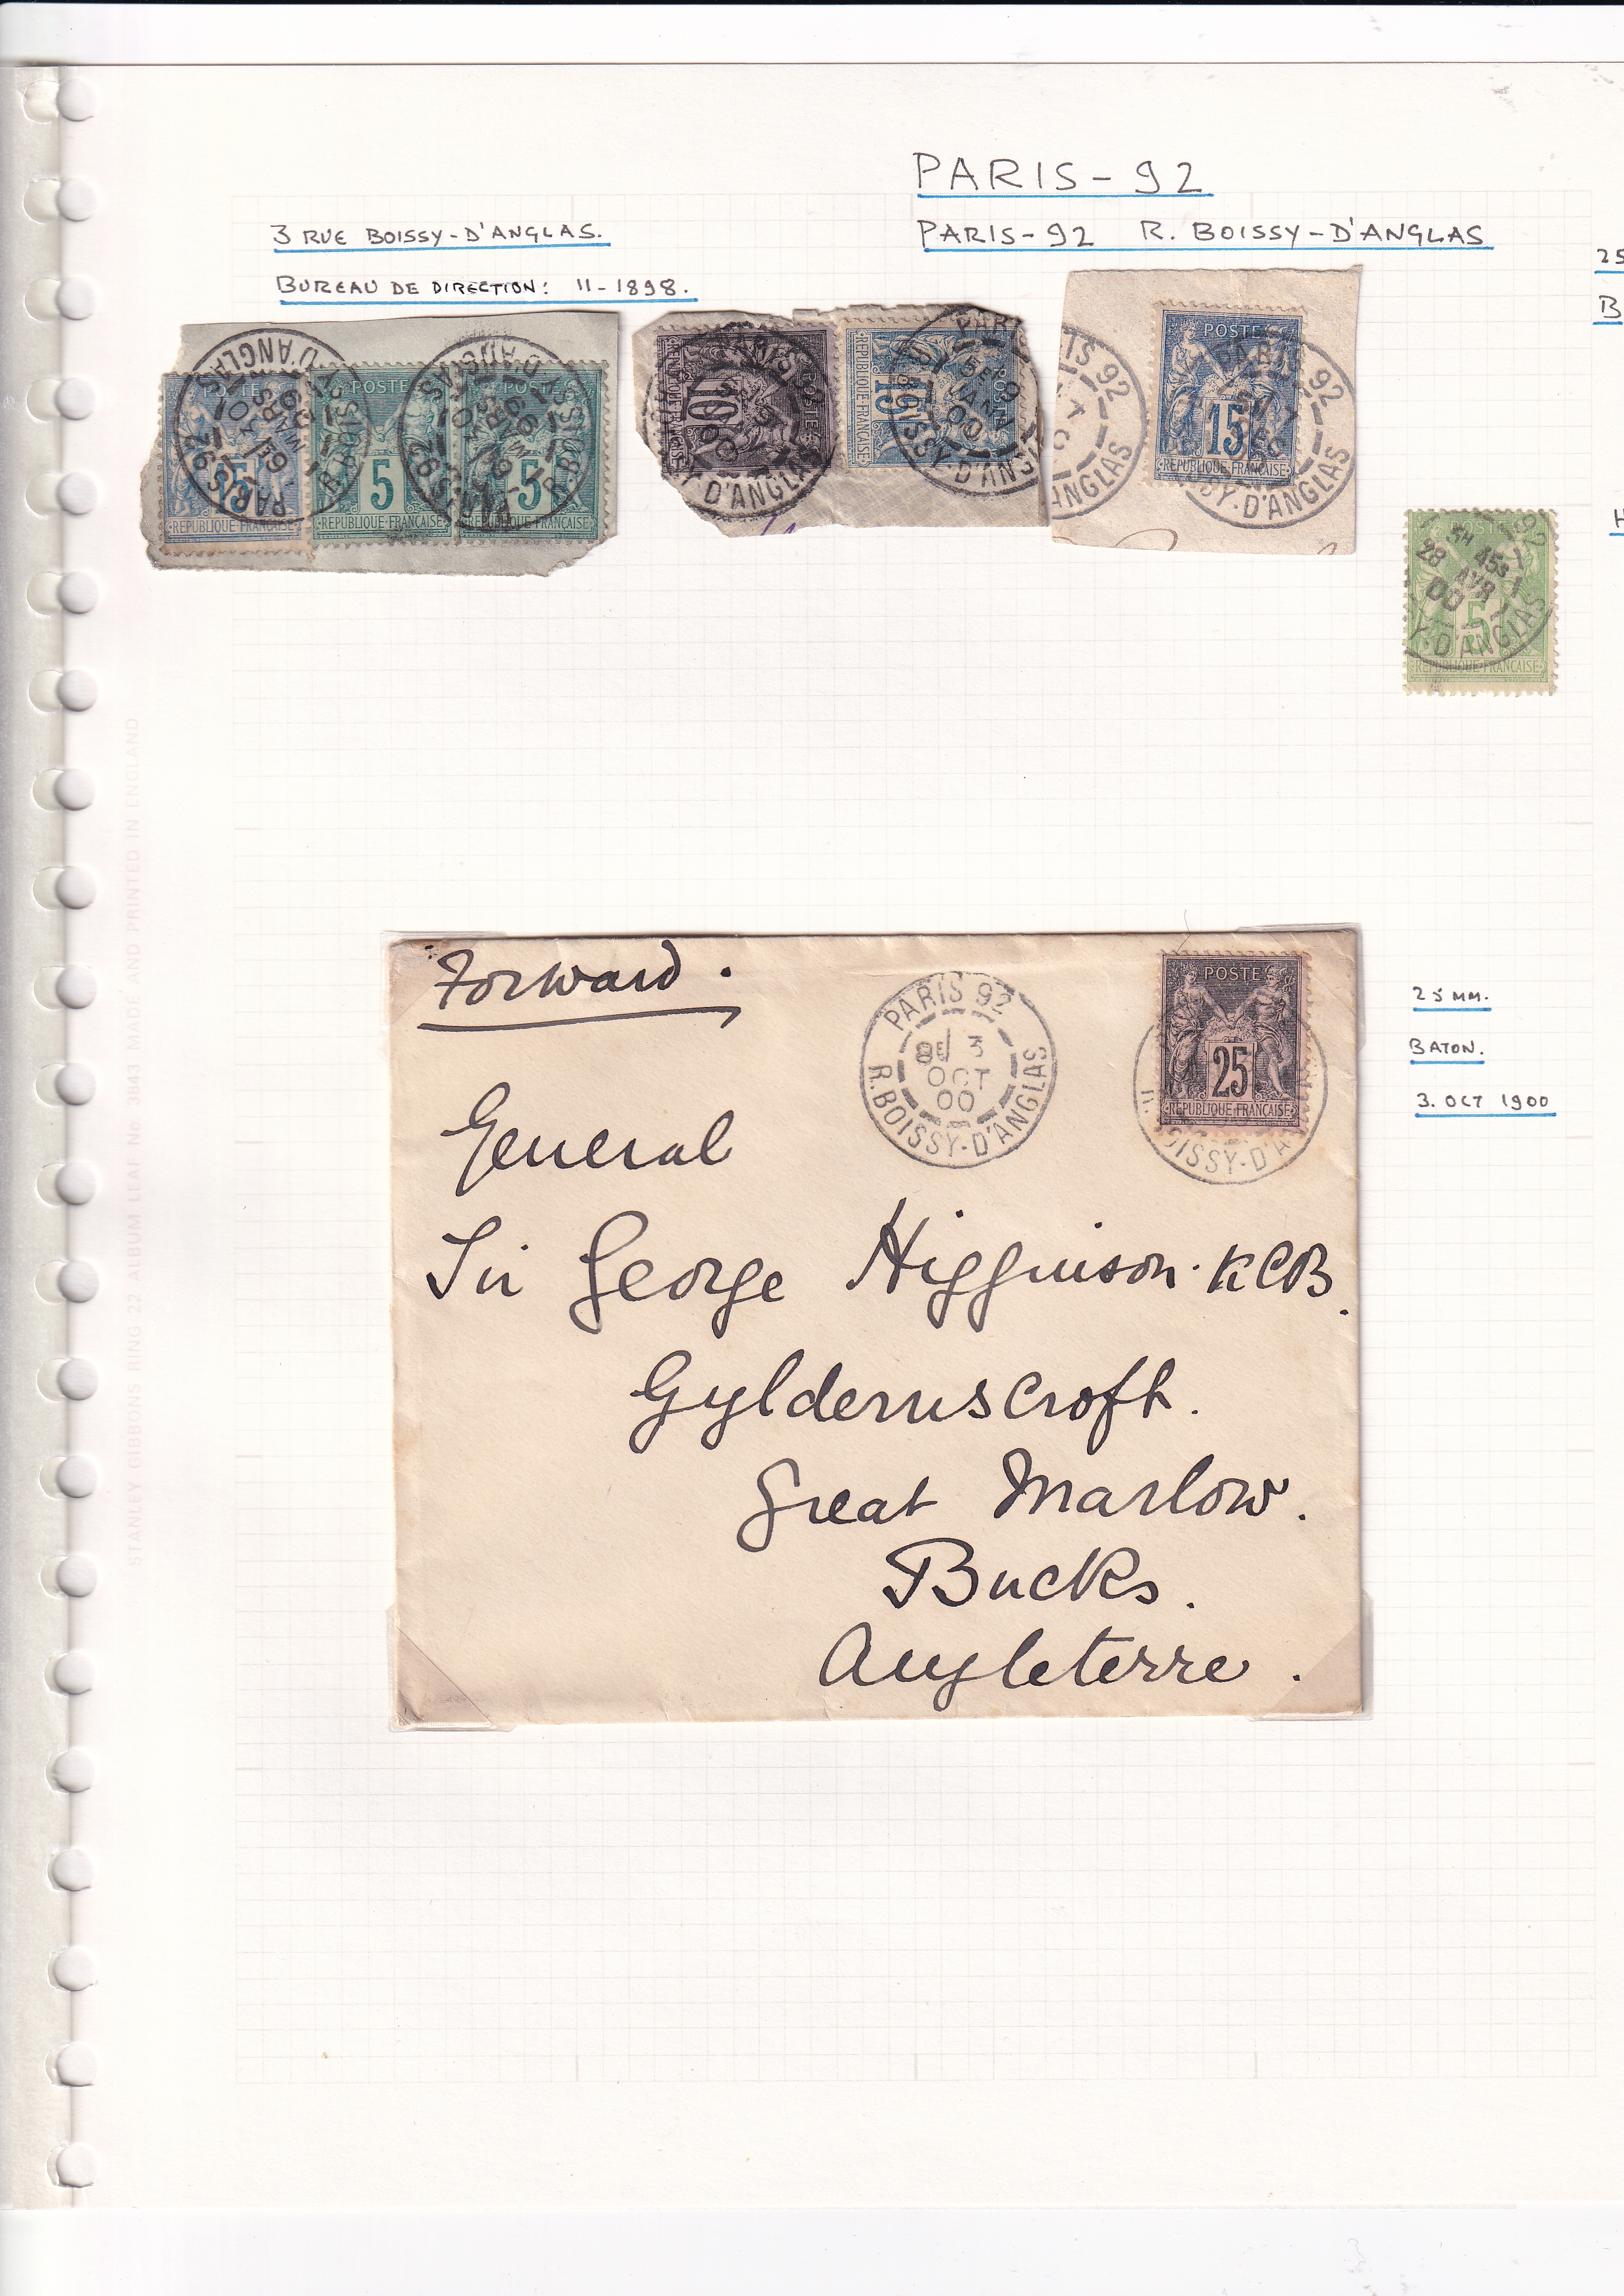 PARIS-92
3 RUE BOISSY-D'ANGLAS.
PARIS-92 R. BOISSY-D'ANGLAS
25
BUREAU DE DIRECTION: 11-1898.
B
POSTE
15
REPUBLIQUE FRANÇAISE
POSTE
5
REPUBLIQUE FRANÇAISE
POSTE
5
REPUBLIQUE FRANÇAISE
PARIS 92
MARS
R. BOISSY D'ANGLAS
10
15
JANV
00
PARIS 92
D'ANGLAS
POSTE
15
REPUBLIQUE FRANÇAISE
H
92
5H 45S
28 AVR
00
5
Y-D'ANGLAS
REPUBLIQUE FRANÇAISE
Forward.
PARIS 92
8E/ 3
OCT
00
R. BOISSY-D'ANGLAS
POSTES
25
REPUBLIQUE FRANÇAISE
OISSY-D'A
25 MM.
BATON.
3. OCT 1900
General
Sir George Higginson. KCB.
Gyldernscroft.
Great Marlow.
Bucks.
Angleterre.
STANLEY GIBBONS RING 22 ALBUM LEAF No. 3843 MADE AND PRINTED IN ENGLAND